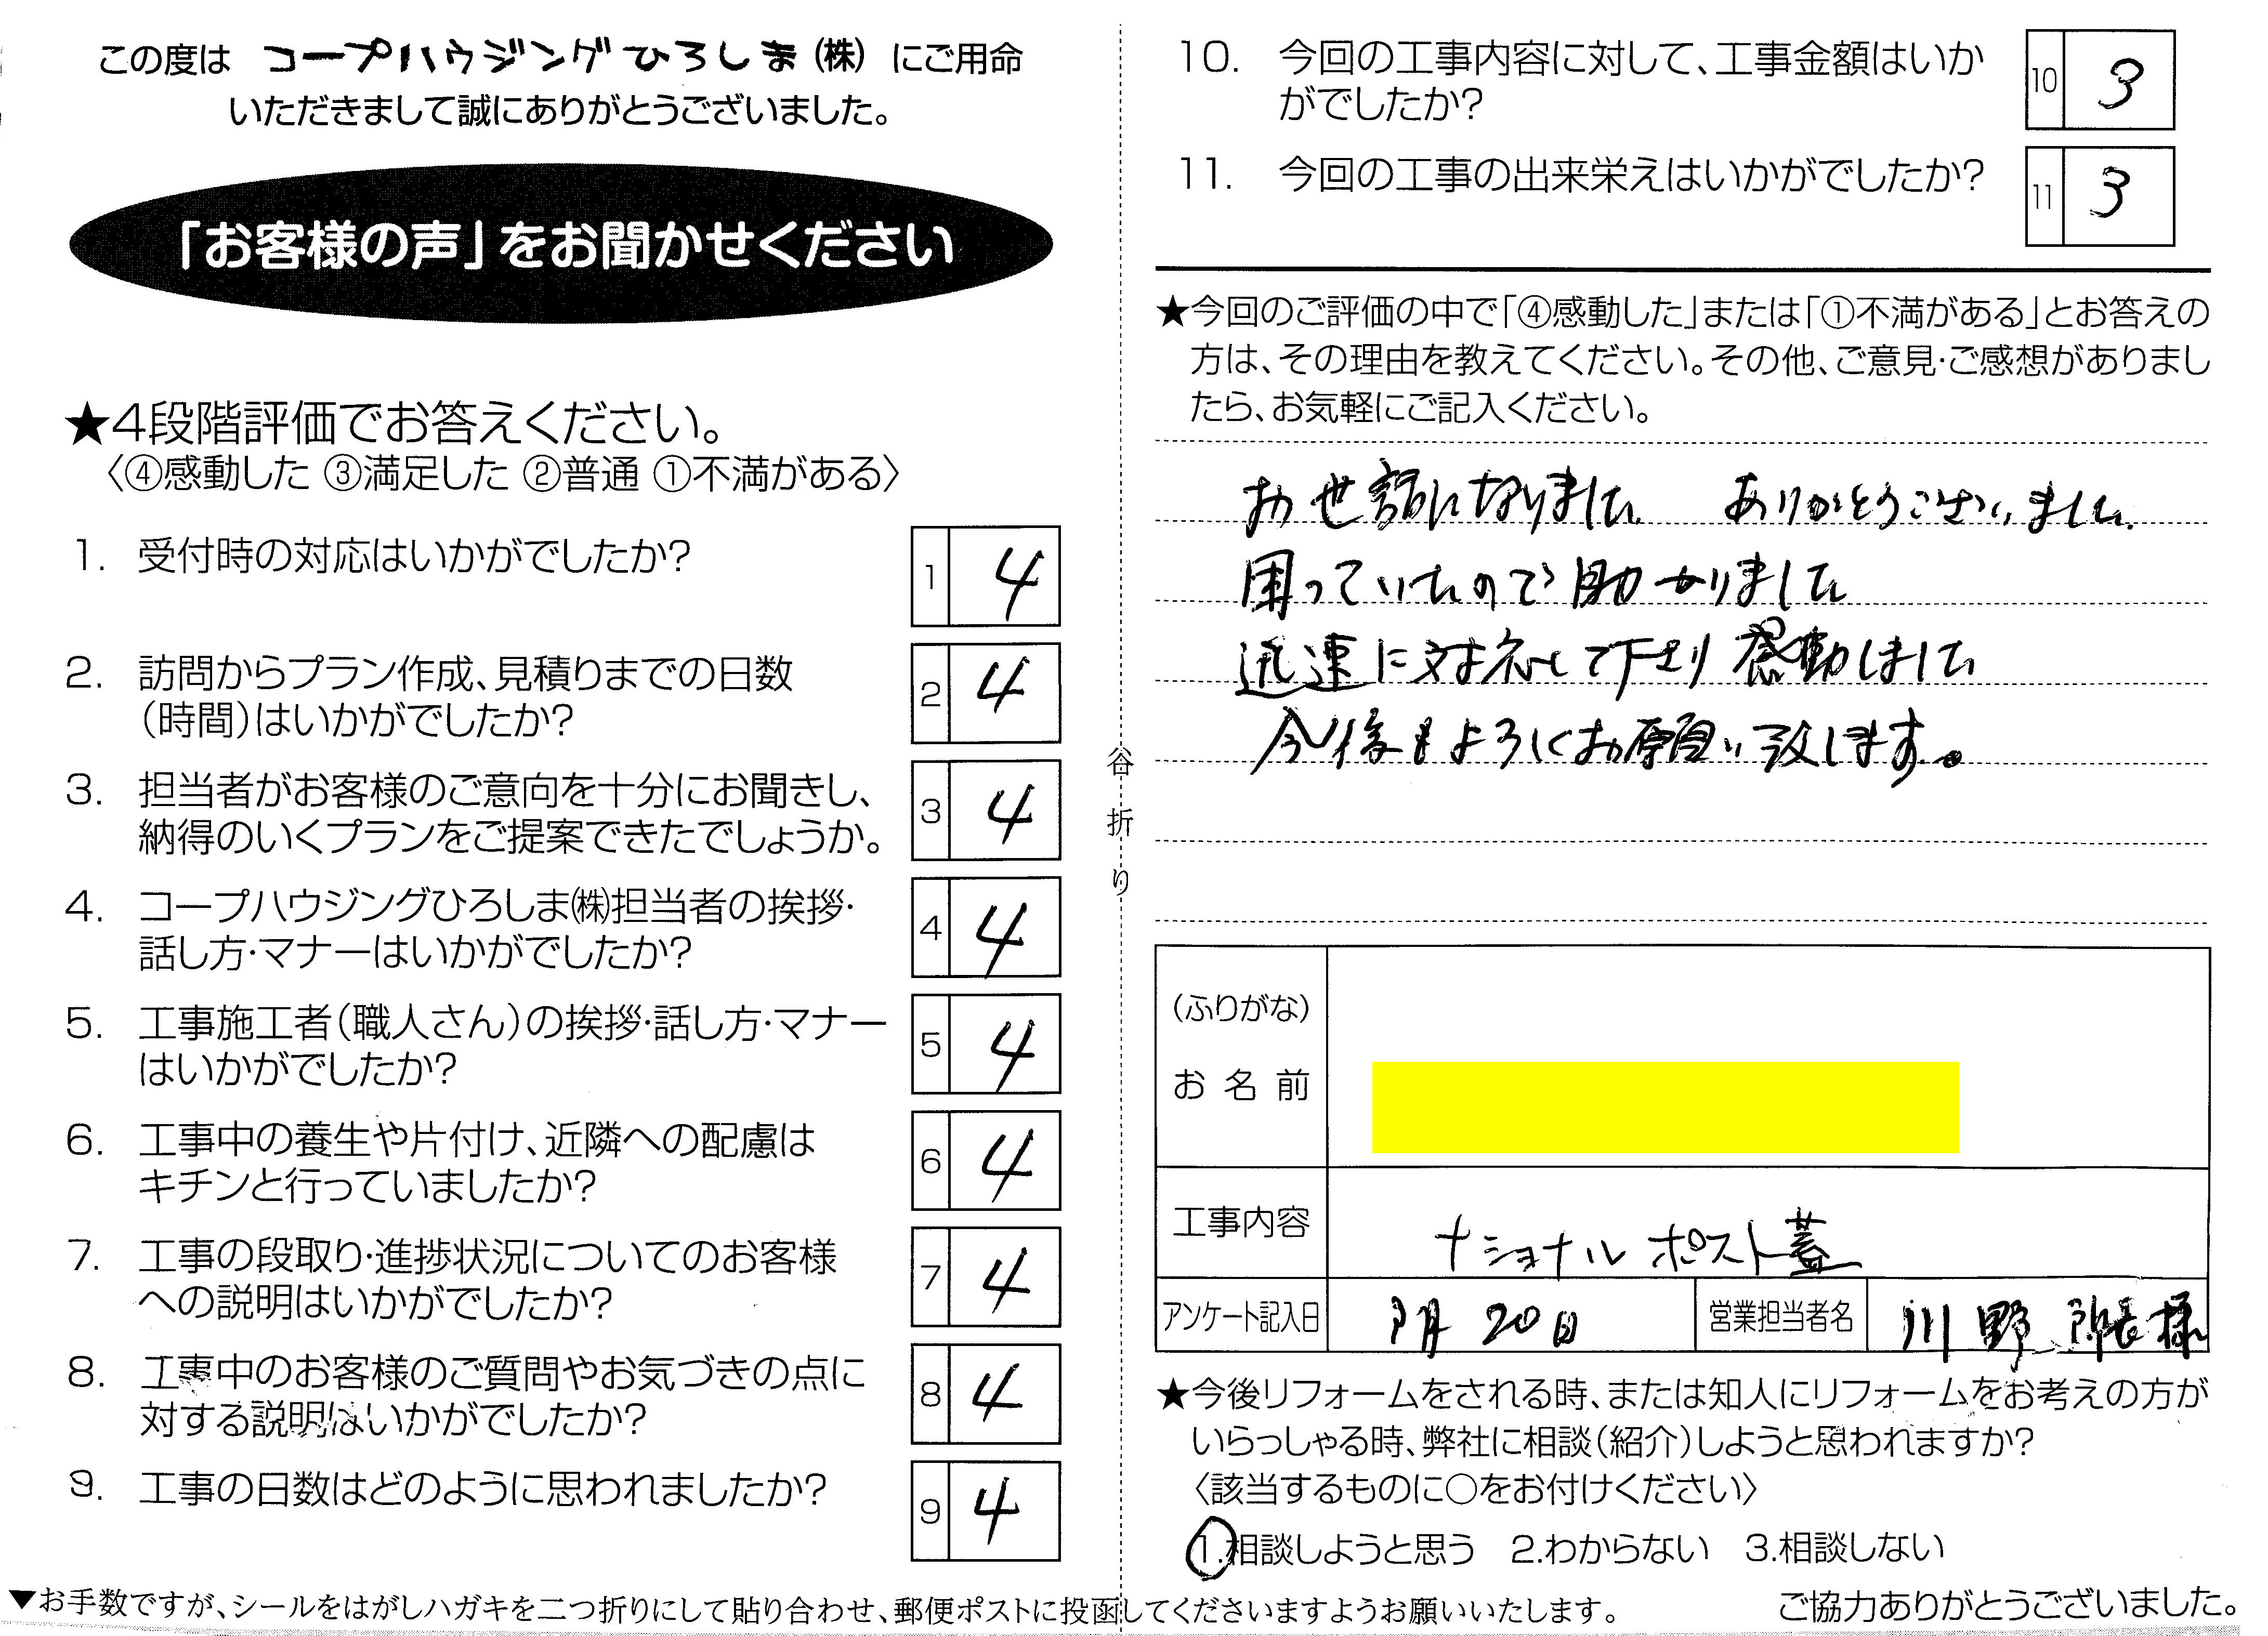 この度は コープハウジングひろしま(株) にご用命
いただきまして誠にありがとうございました。
「お客様の声」をお聞かせください
★4段階評価でお答えください。
〈④感動した ③満足した ②普通 ①不満がある〉
1. 受付時の対応はいかがでしたか?
1 4
2. 訪問からプラン作成、見積りまでの日数
(時間)はいかがでしたか?
2 4
3. 担当者がお客様のご意向を十分にお聞きし、
納得のいくプランをご提案できたでしょうか。
3 4
4. コープハウジングひろしま㈱担当者の挨拶・
話し方・マナーはいかがでしたか?
4 4
5. 工事施工者(職人さん)の挨拶・話し方・マナー
はいかがでしたか?
5 4
6. 工事中の養生や片付け、近隣への配慮は
キチンと行っていましたか?
6 4
7. 工事の段取り・進捗状況についてのお客様
への説明はいかがでしたか?
7 4
8. 工事中のお客様のご質問やお気づきの点に
対する説明はいかがでしたか?
8 4
9. 工事の日数はどのように思われましたか?
9 4
谷折り
10. 今回の工事内容に対して、工事金額はいか
がでしたか?
10 3
11. 今回の工事の出来栄えはいかがでしたか?
11 3
★今回のご評価の中で「④感動した」または「①不満がある」とお答えの
方は、その理由を教えてください。その他、ご意見・ご感想がありまし
たら、お気軽にご記入ください。
お世話になりました ありがとうございました.
困っていたので助かりました
迅速に対応して下さり感動しました
今後もよろしくお願い致します。
(ふりがな)
お名前
工事内容 ナショナル ポスト蓋
アンケート記入日 月 20日 営業担当者名 川野 所長様
★今後リフォームをされる時、または知人にリフォームをお考えの方が
いらっしゃる時、弊社に相談(紹介)しようと思われますか?
〈該当するものに○をお付けください〉
1.相談しようと思う 2.わからない 3.相談しない
ご協力ありがとうございました。
▼お手数ですが、シールをはがしハガキを二つ折りにして貼り合わせ、郵便ポストに投函してくださいますようお願いいたします。